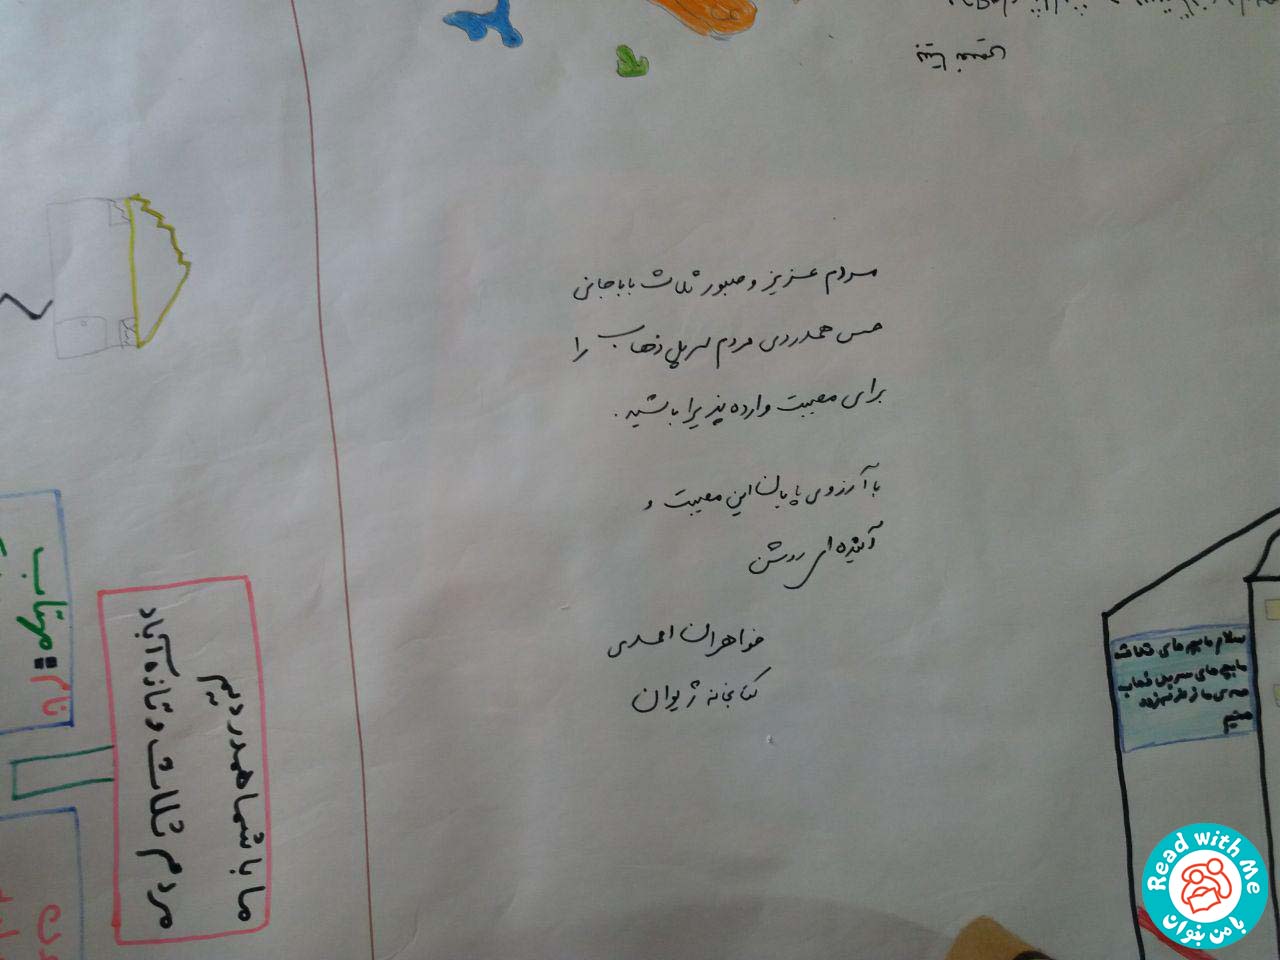 مردم عزیز و صبور ثلاث باباجانی
حس همدردی مردم سرپل ذهاب را
برای مصیبت وارده پذیرا باشید.
با آرزوی پایان این مصیبت و
آینده ای روشن
خواهران احمدی
کتابخانه ژیوان
ما با شما همدردیم
مردم ثلاث و تازه آباد
نام: مهتاب
سلام ما بچه های
ما بچه های سرپل ذهاب
هستیم
Read with Me
با من بخوان